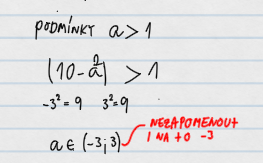 PODMÍNKY a > 1
(10-a²) > 1
-3²=9 3²=9
a ∈ (-3;3)
NEZAPOMENOUT
I NA TO -3